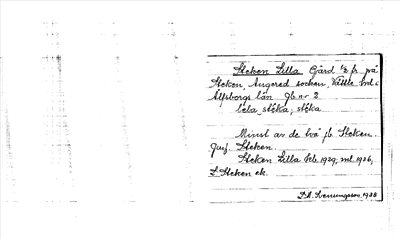 Steken Lilla Gård 1/8 fr på
Steken, Angered socken, Vättle hd i
Älfsborgs län. Jb nr 2
lɛta, stéka, stéka
Minst av de två jb. Steken.
Jmf. Steken.
Steken Lilla Jeb. 1929, ml 1926,
L Steken ek.
1938